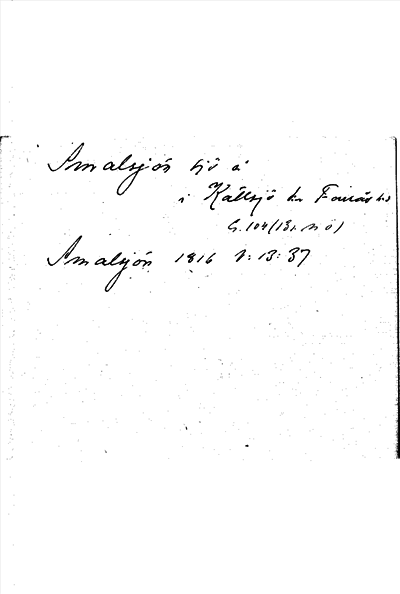 Smalsjön sjö å
i Källsjö sn Faurås hd
G. 104 (13 v. n. ö)
Smalsjön 1816 V: 13: 37